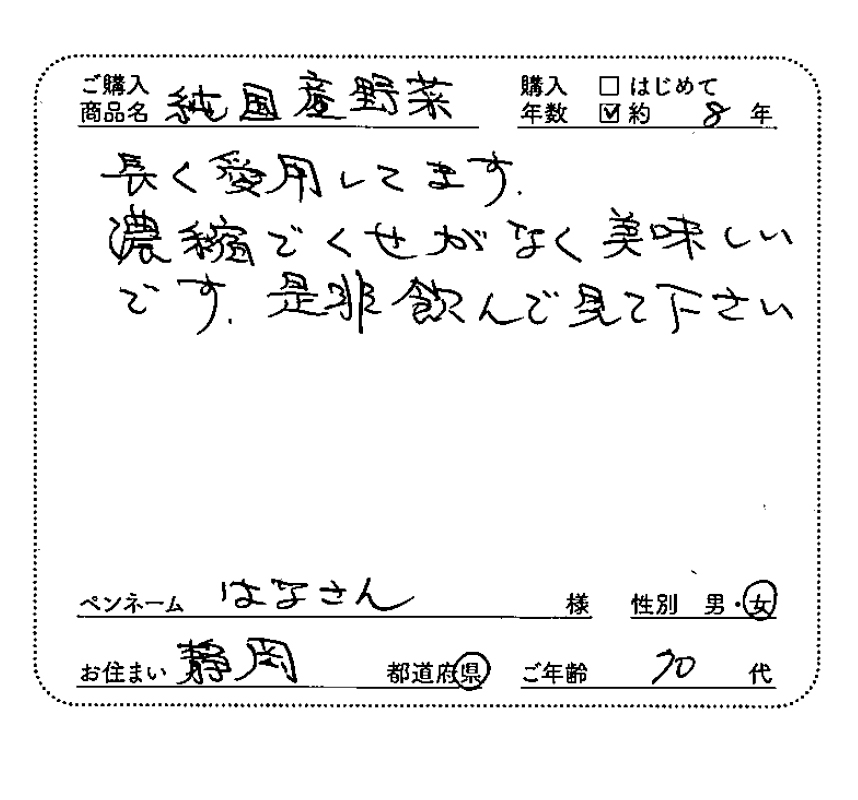 ご購入 商品名 純国産野菜
購入 年数 □ はじめて ☑ 約 8 年
長く愛用してます.
濃縮でくせがなく美味しい
です. 是非飲んで見て下さい
ペンネーム はなさん 様 性別 男・女
お住まい 静岡 都道府県 ご年齢 70 代